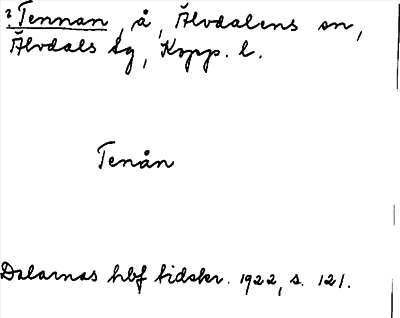 ? Tennan, å, Älvdalens sn,
Älvdals tg, Kopp. l.
Tenån
Dalarnas hbf tidskr. 1922, s. 121.